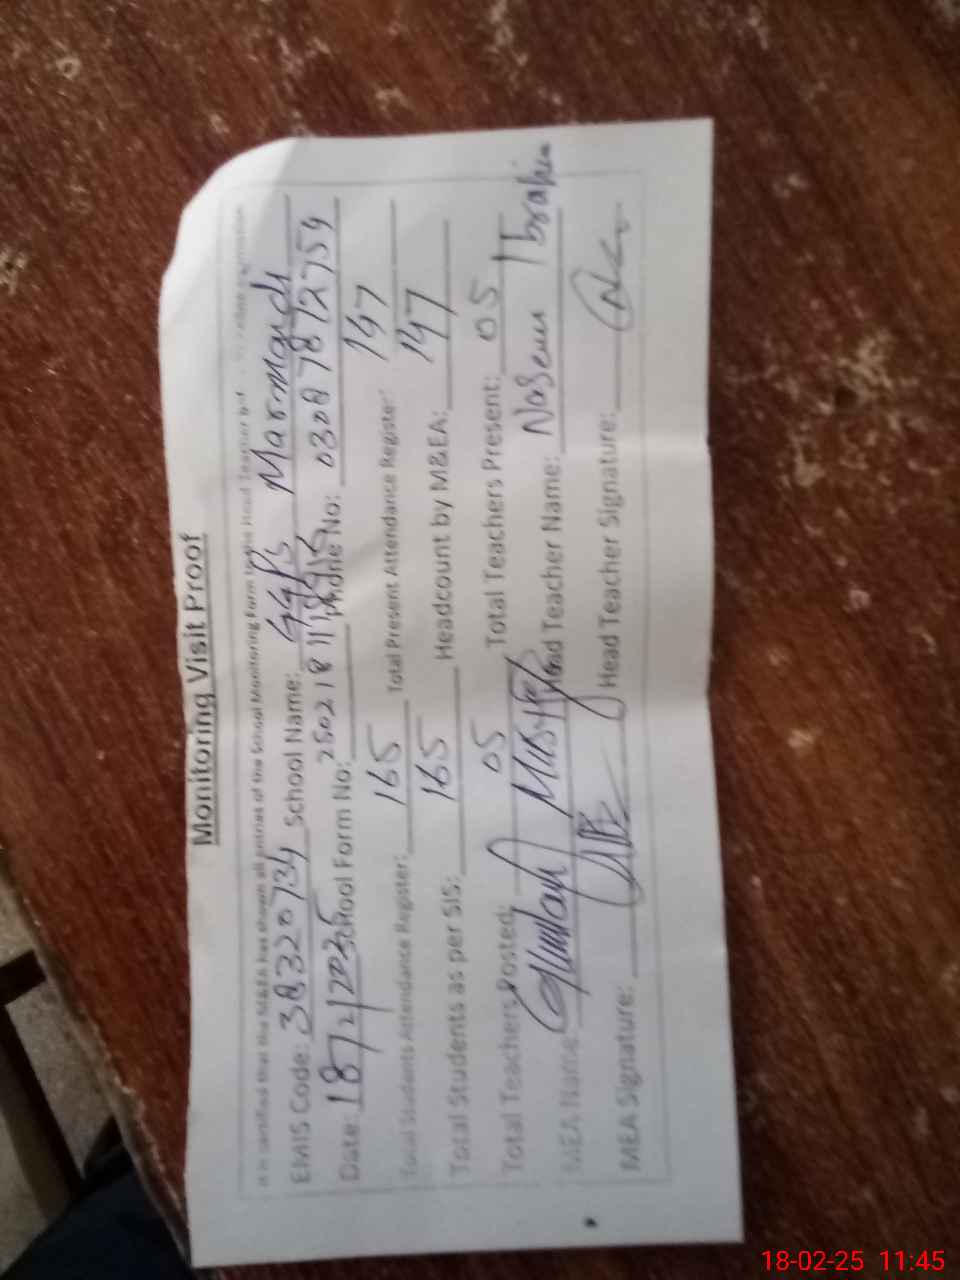 Monitoring Visit Proof
It is certified that the M&EA has shown all entries of the School Monitoring Form to the Head Teacher
EMIS Code: 38320734 School Name: GGPS Marmandi
Date: 18/2/2025 School Form No: Phone No: 03087872759
Total Students Attendance Register: 165 Total Present Attendance Register: 147
Total Students as per SIS: 165 Headcount by M&EA: 147
Total Teachers Posted: 05 Total Teachers Present: 05
MEA Name: Ghulam Head Teacher Name: Naseem Ibrahim
MEA Signature: Head Teacher Signature:
18-02-25 11:45